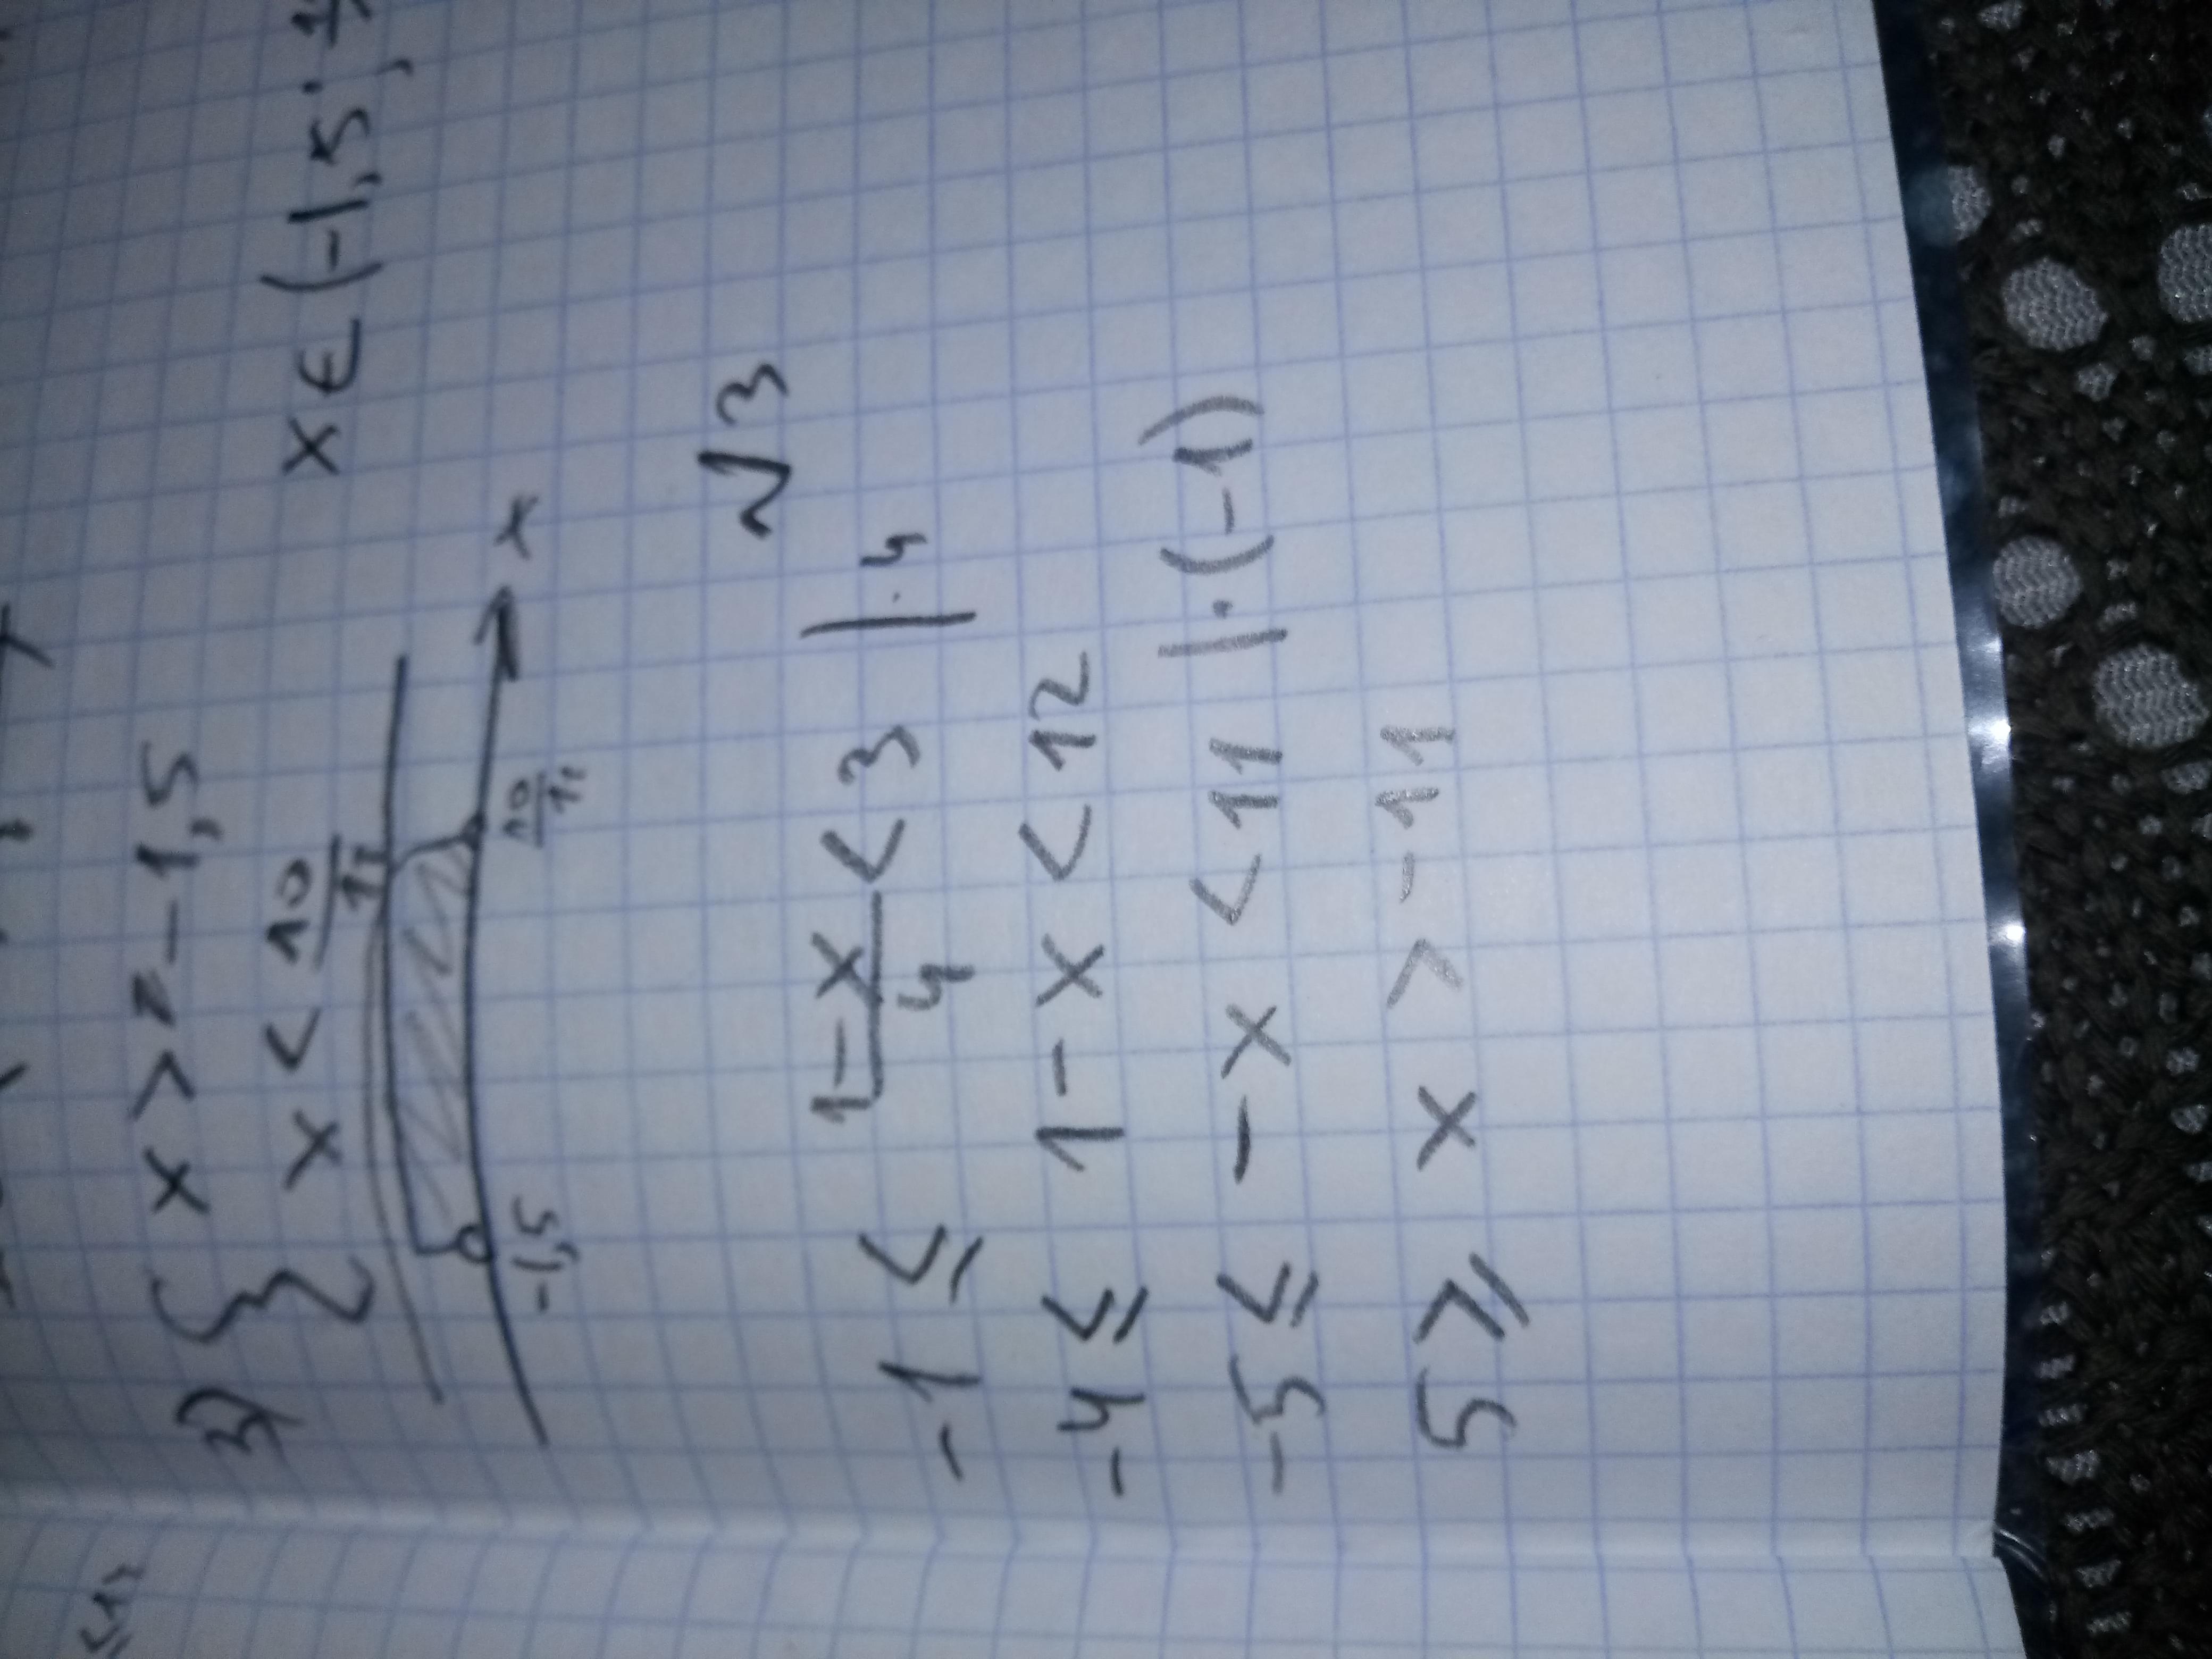 3) { x > -1,5
x < 10/11
x ∈ (-1,5;
-1,5 10/11 x
№3
-1 ≤ (1-x)/4 < 3 | · 4
-4 ≤ 1 - x < 12
-5 ≤ - x < 11 | · (-1)
5 ≥ x > -11